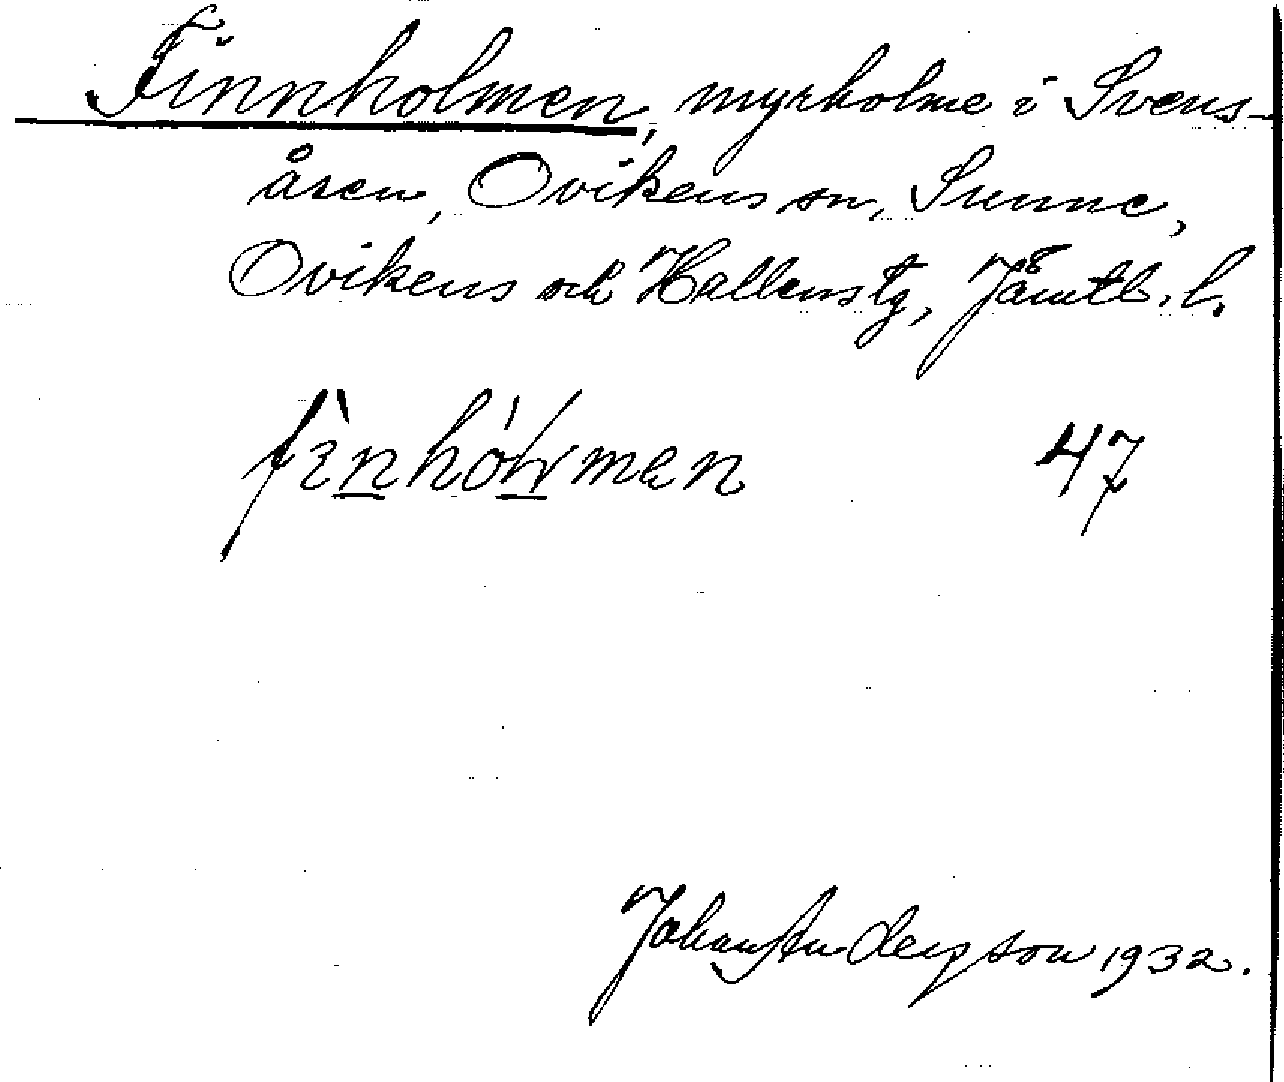 Finnholmen, myrholme i Svens-
åsen, Ovikens sn, Sunne,
Ovikens och Hallens tg, Jämtl. l.
fìnhówmen 47
Johan Anderson 1932.